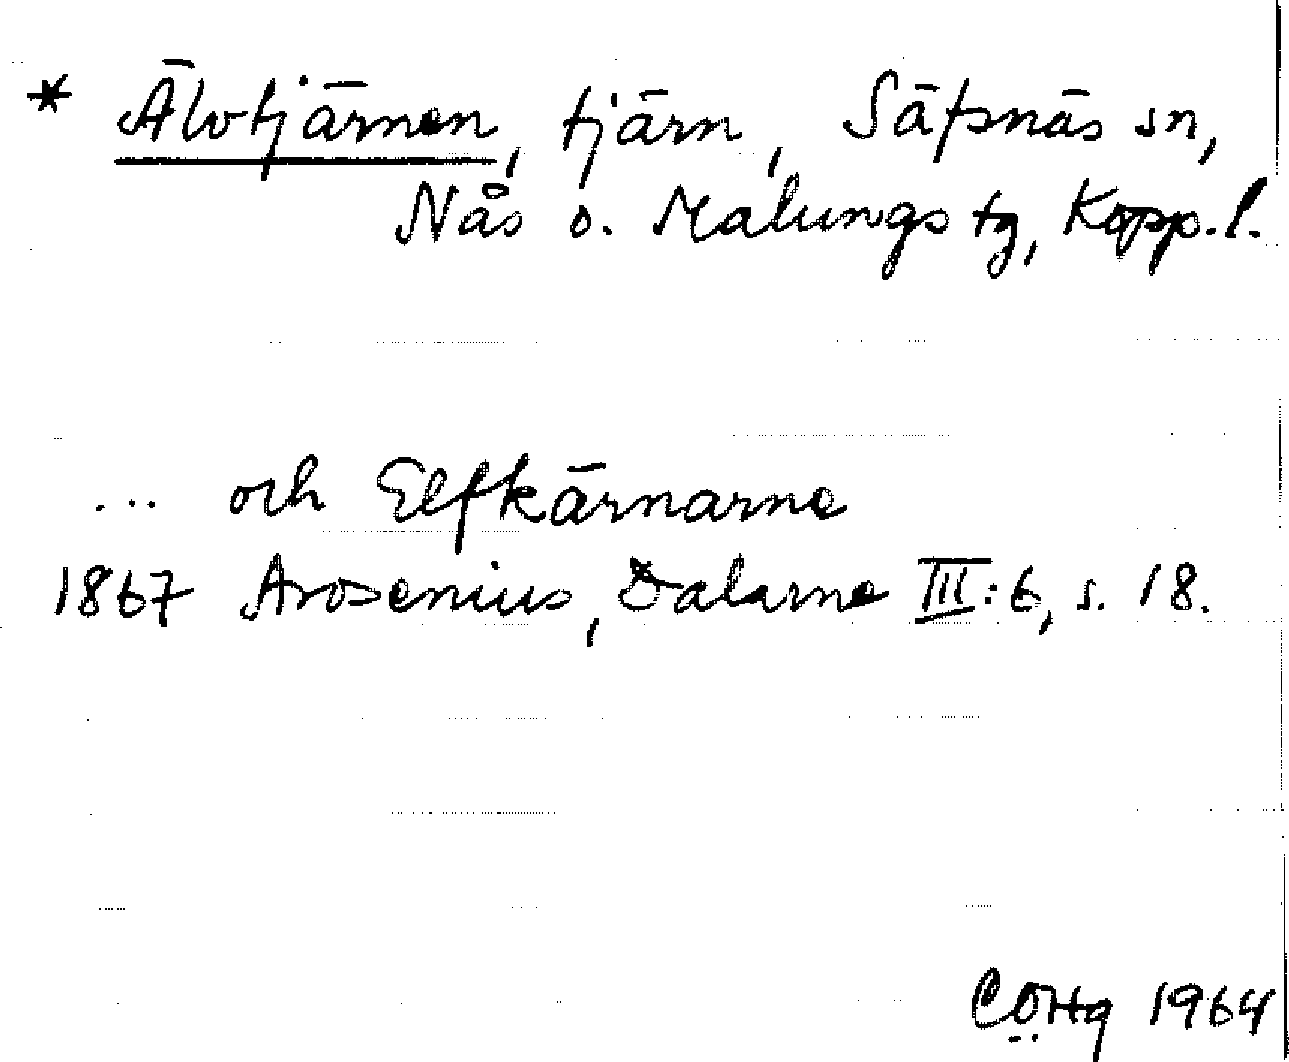 * Älvtjärnen, tjärn, Säfsnäs sn,
Nås o. Malungs tg, Kopp. l.
... och Elfkärnarne
1867 Arosenius, Dalarne III:6, s. 18.
CÖHg 1964